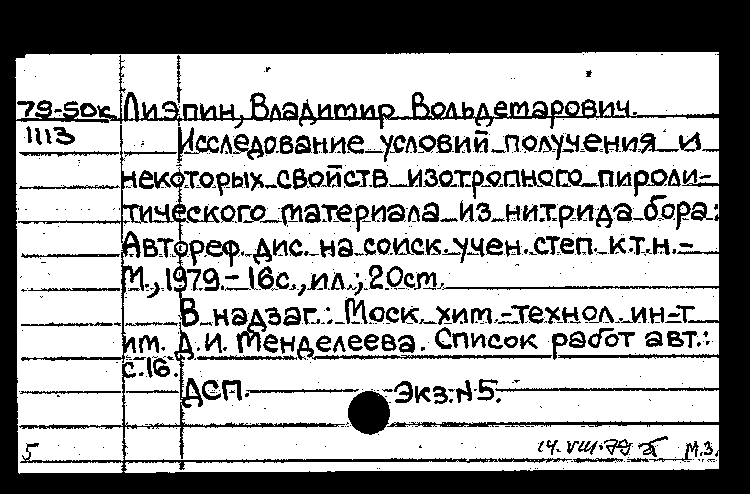 79-50к Лиэпин, Владимир Вольдемарович.
1113 Исследование условий получения и
некоторых свойств изотропного пироли-
тического материала из нитрида бора:
Автореф. дис. на соиск. учен. степ. к.т.н.-
М., 1979.- 16с., ил.; 20см.
В надзаг.: Моск. хим.-технол. ин-т
им. Д.И. Менделеева. Список работ авт.:
с.16.
ДСП. Экз.N5.
5 14.VIII.79 М.З.